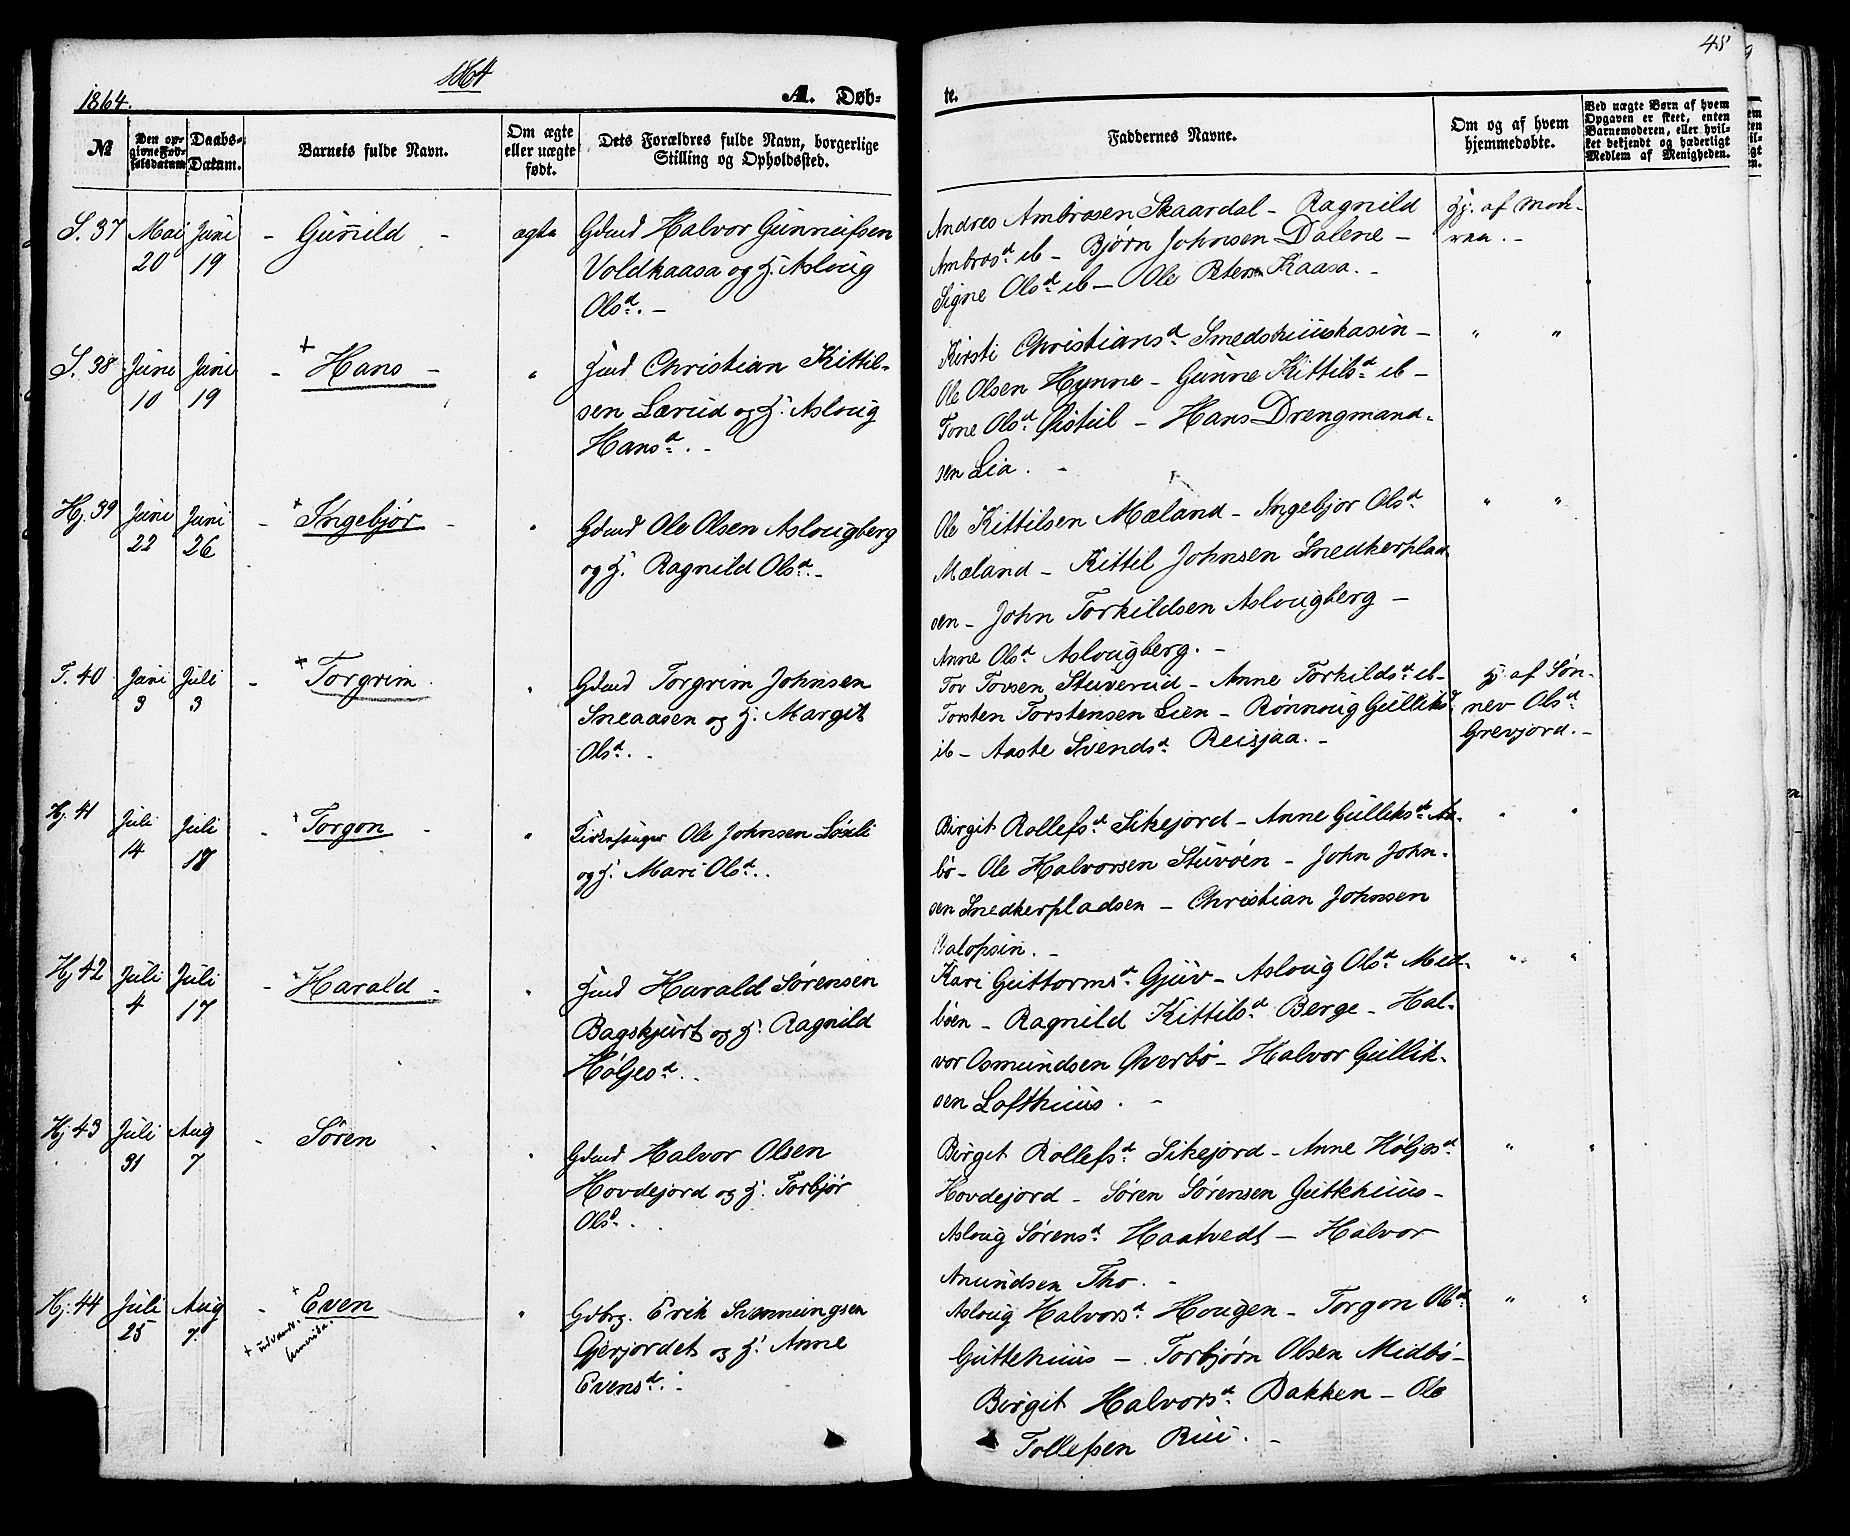 1864
45
1864.
A. Døb-
te.
№
Den op-
givne Fød-
selsdatum.
Daabs-
Datum.
Barnets fulde Navn.
Om ægte
eller uægte
født.
Dets Forældres fulde Navn, borgerlige
Stilling og Opholdssted.
Faddernes Navne.
Om og af hvem
hjemmedøbte.
Ved uægte Børn af hvem
Opgaven er skeet, enten
Barnemoderen, eller hvil-
ket bekjendt og hæderligt
Medlem af Menigheden.
S. 37 Mai 20 Juni 19 - Gunild - ægte
Gdmd Halvor Gunnufsen
Voldkaasa og H. Asloug
Olsd. -
Andres Ambrosen Skaardal - Ragnild
Ambrosd ib - Bjørn Johnsen Dalene -
Signe Olsd ib - Ole Petersen Kaasa. -
Hj. af Mod-
ren. -
S. 38 Juni 10 Juni 19 - + Hans - "
Jmd Christian Kittil-
sen Lærud og H. Asloug
Hansd. -
Kirsti Christiansd Smedshuuskasin -
Ole Olsen Hynne - Gunne Kittilsd ib -
Tone Olsd Østtul - Hans Drengmand-
sen Lia. -
" "
Hj. 39 Juni 22 Juni 26 - + Ingebjør - "
Gdmd Ole Olsen Aslougberg
og H. Ragnild Olsd. -
Ole Kittilsen Mæland - Ingebjor Olsd
Mæland - Kittil Johnsen Snedkerplad
sen - John Torkildsen Aslougberg -
Anne Olsd Aslougberg. -
" "
T. 40 Juni 3 Juli 3 - + Torgrim. "
Gdmd Torgrim Johnsen
Sneaasen og H. Margit
Olsd. -
Tov Tovsen Stuverud - Anne Torkildsd ib -
Torsten Torstensen Lien - Rønnoug Gulliksd
ib - Aaste Svendsd Reisjaa. -
Hj. af Søn-
nev Olsd
Grevjord. -
Hj. 41 Juli 14 Juli 17 - + Torgon - "
Ole Johnsen
og H. Mari Olsd. .
Birgit Rollefsd Sikejord - Anne Gulliksd
bø - Ole Halvorsen Stuvøen - John John-
sen Snedkerpladsen - Christian Johnsen
" "
Hj 42 Juli 4 Juli 17 - + Harald - "
Jmd Harald Sørensen
Bagskjurt og H. Ragnild
Høljesd. -
Kari Guttormsd Gjuv - Asloug Olsd Mid-
bøen - Ragnild Kittilsd Berge - Hal-
vor Osmundsen Overbø - Halvor Gullik-
sen Lofthuus. -
" "
Hj 43 Juli 31 Aug 7 - Søren "
Gdmd Halvor Olsen
Hovdejord og H. Torbjør
Olsd. .
Birget Rollefsd Sikejord - Anne Høljesd
Hovdejord - Søren Sørensen Guttehuus -
Asloug Sørensd Haatvedt - Halvor
Anundsen Tho. -
" "
Hj. 44 Juli 25 Aug 7. - + Even "
+ udvand. Amerika.
Gdbrg. Erik Svenningsen
Gjerjordet og H. Anne
Evensd. -
Asloug Halvorsd Hougen - Torgon Olsd
Guttehuus - Torbjørn Olsen Midbø -
Birgit Halvorsd Bakken - Ole
Tollefsen Rui. -
" "